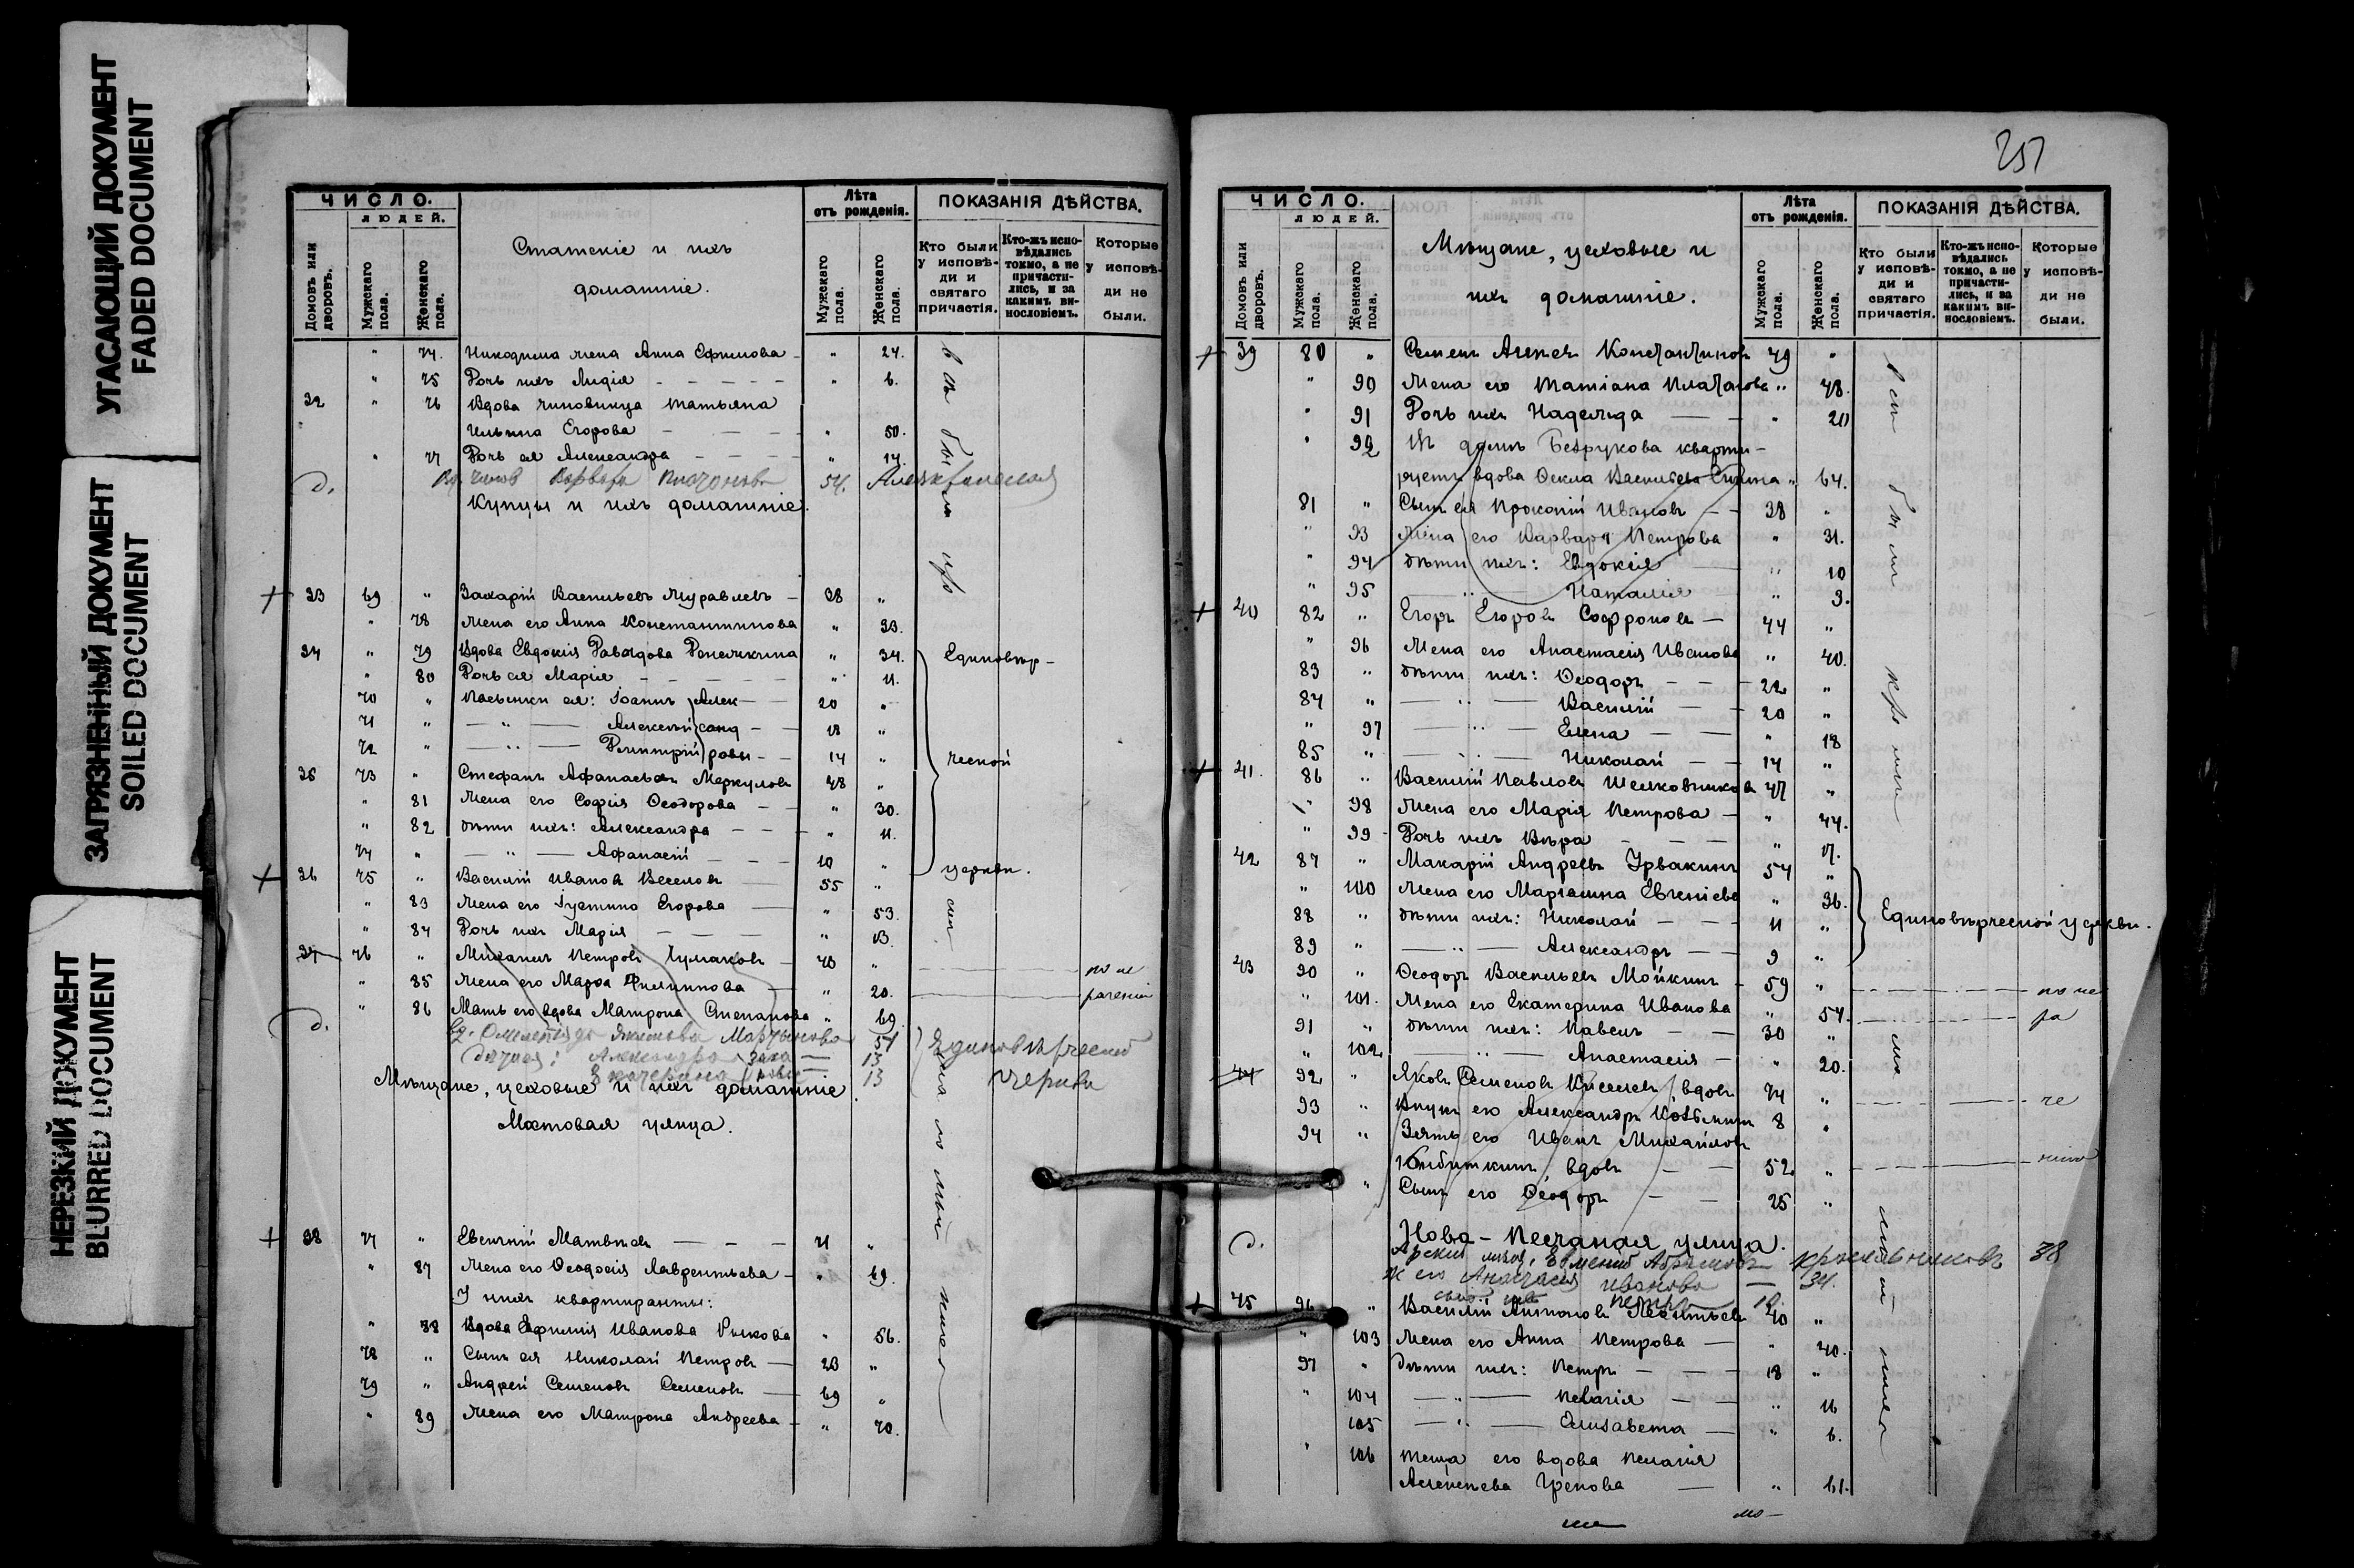 УГАСАЮЩИЙ ДОКУМЕНТ
FADED DOCUMENT
ЗАГРЯЗНЕННЫЙ ДОКУМЕНТ
SOILED DOCUMENT
НЕРЕЗКИЙ ДОКУМЕНТ
BLURRED DOCUMENT
ЧИСЛО.
ЛЮДЕЙ.
Домовъ или дворовъ.
Мужскаго пола.
Женскаго пола.
Статскіе и ихъ
домашніе.
Лѣта
отъ рожденія.
Мужскаго пола.
Женскаго пола.
ПОКАЗАНІЯ ДѢЙСТВА.
Кто были у исповѣди и святаго причастія.
Кто-жъ исповѣдались токмо, а не причастились, и за какимъ винословіемъ.
Которые у исповѣди не были.
" 74. Никодима жена Анна Ефимова - " 24.
" 75 Дочь ихъ Лидія - - - - - " 6.
32 " 76 Вдова чиновница Татьяна
Ильина Егорова - - - " 50.
" 77 Дочь ея Александра - - - " 14.
д. Варвара 54.
Купцы и ихъ домашніе.
+ 33 69 " Захарій Васильевъ Журавлевъ - 38 "
" 78 Жена его Анна Константинова " 33.
34 " 79 Вдова Евдокія " 34. Единовѣр-
" 80 Дочь ея Марія - - - - - " 11.
70 " Пасынки ея: Іоаннъ Алек- 20 "
71 " — " — Алексѣй санд - - 18 "
72 " — " — Димитрій ровы - - 14 " ческой
35 73 " Стефанъ Афанасьевъ Меркуловъ 48 "
" 81 Жена его Софія Ѳеодорова - - " 30.
" 82 Дѣти ихъ: Александра - - - " 11.
74 " — " — Афанасій - - - 10 "
+ 36 75 " Василій Ивановъ Веселовъ — 55 " церкви.
" 83 Жена его Іустина Егорова — " 53.
" 84 Дочь ихъ Марія — — — " 13.
37 76 " Михаилъ Петровъ Чумаковъ — 40 " по не
" 85 Жена его Марфа Филиппова — " 20. раченію
" 86 Мать его вдова Матрона Степанова " 69
д. Якимова Мартынова 51 Единовѣрческой
Александра 13
Екатерина 13 церкви
Мѣщане, цеховые и ихъ домашніе.
Мостовая улица.
+ 38 77 " Евгеній Матвѣевъ — - - 71 "
" 87 Жена его Ѳеодосія Лаврентьева - " 69.
У нихъ квартиранты:
" 88 Вдова Ефимія Иванова Рыкова " 56.
78 " Сынъ ея Николай Петровъ — 23 "
79 " Андрей Семеновъ Семеновъ — 69 "
" 89 Жена его Матрона Андреева - " 70.
251
ЧИСЛО.
ЛЮДЕЙ.
Домовъ или дворовъ.
Мужскаго пола.
Женскаго пола.
Мѣщане, цеховые и
ихъ домашніе.
Лѣта
отъ рожденія.
Мужскаго пола.
Женскаго пола.
ПОКАЗАНІЯ ДѢЙСТВА.
Кто были у исповѣди и святаго причастія.
Кто-жъ исповѣдались токмо, а не причастились, и за какимъ винословіемъ.
Которые у исповѣди не были.
+ 39 80 " Семенъ Алексѣевъ Константиновъ 49 "
" 90 Жена его Татіана Платонова " 48.
" 91 Дочь ихъ Надежда — — " 20
" 92 Въ домѣ Безрукова кварти-
руетъ вдова Ѳекла Васильева " 64.
81 " Сынъ ея Прокопій Ивановъ - - 38 "
" 93 Жена его Варвара Петрова " 31.
" 94 Дѣти ихъ: Евдокія — " 10
" 95 — " — Наталія — " 3.
+ 40 82 " Егоръ Егоровъ Софроновъ — 44 "
" 96 Жена его Анастасія Иванова " 40.
83 " Дѣти ихъ: Ѳеодоръ - - - 22 "
84 " — " — Василій — - 20 "
" 97 — " — Елена — - " 18
85 " — " — Николай — - 14 "
+ 41. 86 " Василій Павловъ Шелковниковъ 47 "
" 98 Жена его Марія Петрова — " 44.
" 99 Дочь ихъ Вѣра - - - " 17.
42 87 " Макарій Андреевъ Урвакинъ 54 "
" 100 Жена его Маріамна Евгеніева " 36.
88 " Дѣти ихъ: Николай - - - 11 " Единовѣрческой церкви.
89 " — " — Александръ — - 9 "
43 90 " Ѳеодоръ Васильевъ Мойкинъ - 59 " по не
" 101. Жена его Екатерина Иванова " 54. ра
91 " Дѣти ихъ: Павелъ — - 30 "
" 102 — " — Анастасія — " 20.
44 92 " Яковъ Семеновъ Киселевъ, вдовъ 74 " че
93 " Внукъ его Александръ Козьминъ 8 "
94 " Зять его Иванъ Михайловъ
вдовъ - — 52 " нію
" Сынъ его Ѳеодоръ - — 25 "
д. Нова-Песчаная улица.
38
Ж его Анастасія Иванова — 34.
+ 45 96 " Василій Антоновъ Леонтьевъ 40 "
" 103 Жена его Анна Петрова — " 40.
97 " Дѣти ихъ: Петръ - — - 18 "
" 104 — " — Пелагія — - " 16
105 — " — Елизавета — " 6.
" 106 Теща его вдова Пелагія
Алексѣева Грекова — " 61.